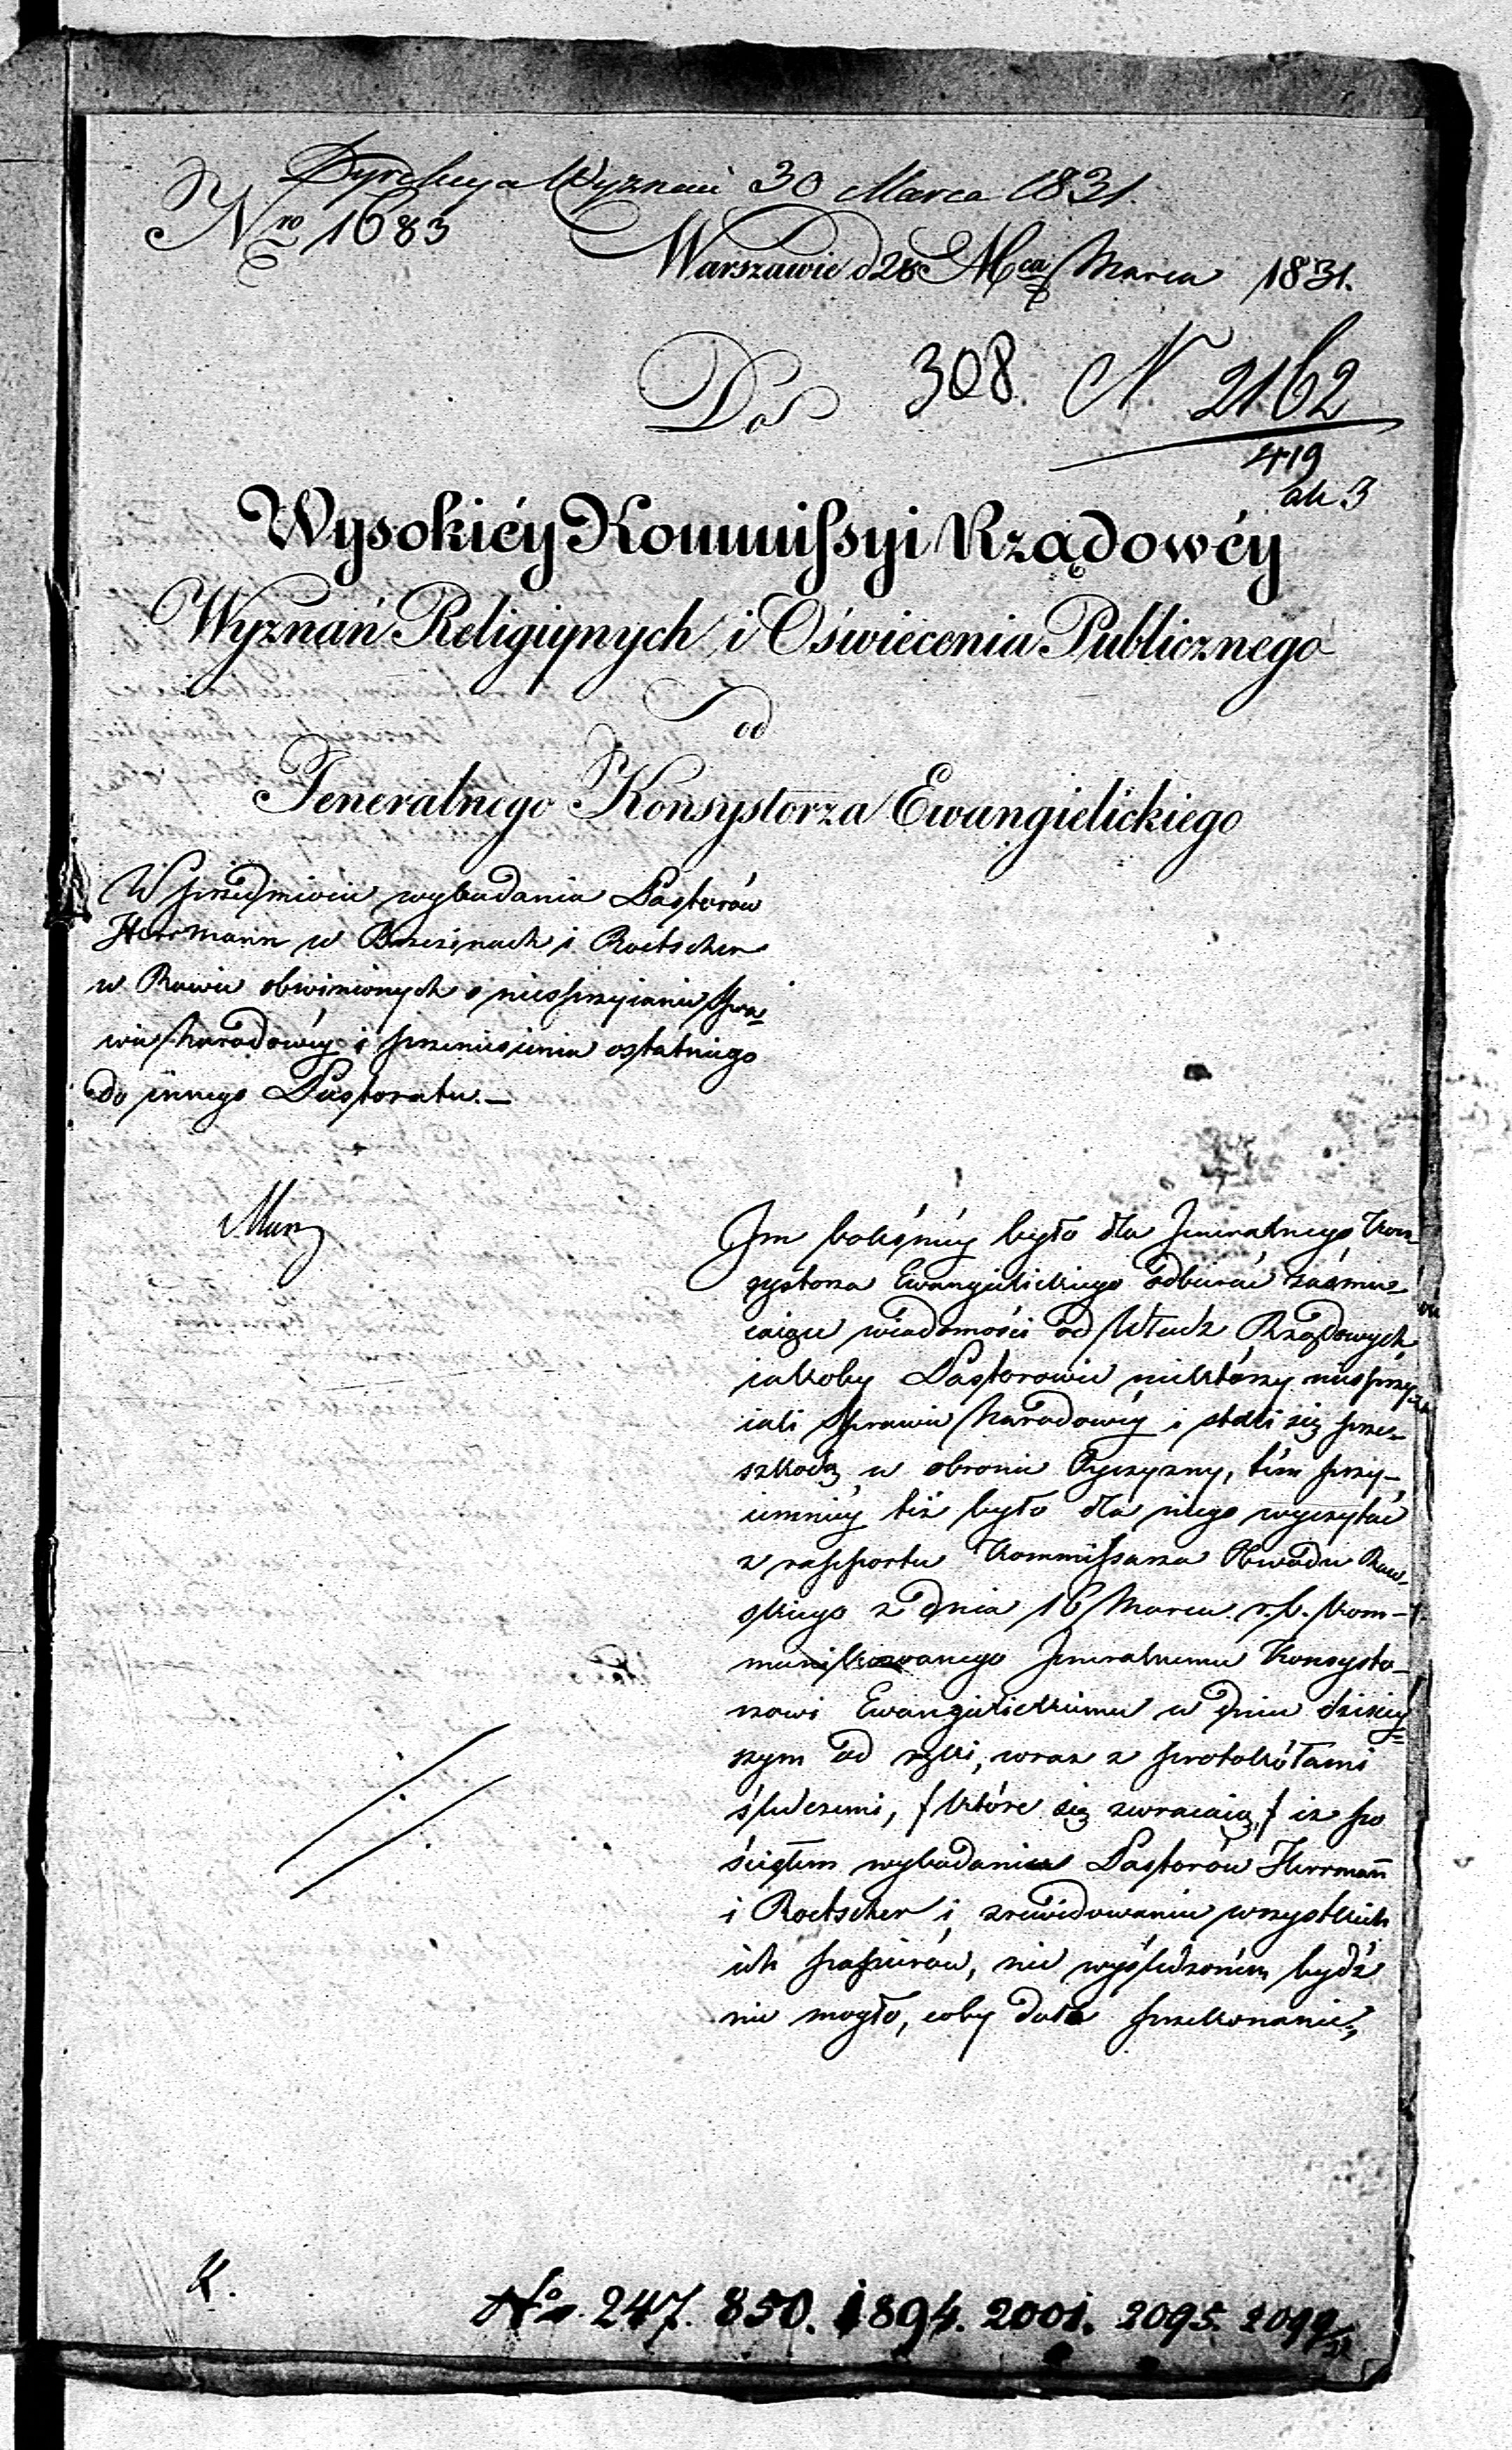 Dyrekcya Wyznań 30 Marca 1831.
Nro 1683
Warszawie d 28 Mca Marca 1831.
Do
308. N 2162
419
ak 3
Wysokiéy Kommissyi Rządowéy
Wyznań Religiynych i Oświecenia Publicznego
od
Jeneralnego Konsystorza Ewangielickiego
W przedmiocie wybadania Pastorów
Herrmann w Brzezinach i Roetscher
w Rawie obwinionych o niesprzyianie Spra=
wie Narodowéy i przeniesienia ostatniego
do innego Pastoratu.—
Im boleśniéy było dla Jeneralnego Kon=
systorza Ewangielickiego odbierać zasmu=
caiące wiadomości od Władz Rządowych,
iakoby Pastorowie niektórzy niesprzy=
iali Sprawie Narodowéy i stali się prze=
szkodą w obronie Oyczyzny, tém przy=
iemniéy też było dla niego wyczytać
z rapportu Kommissarza Obwodu Raw=
skiego z dnia 16 Marca r. b. kom=
munikowanego Jeneralnemu Konsysto=
rzowi Ewangielickiemu w dniu dzisiey=
szym od ręki, wraz z protokółami
śledczemi, / które się zwracaią, / iż po
ścisłem wybadaniu Pastorów Herrmann
i Roetscher i zrewidowaniu wszystkich
ich papierów, nic wyśledzoném bydź
nie mogło, coby dało przekonanie,
K.
No. 247. 850. 1894. 2001. 2095. 2099/31